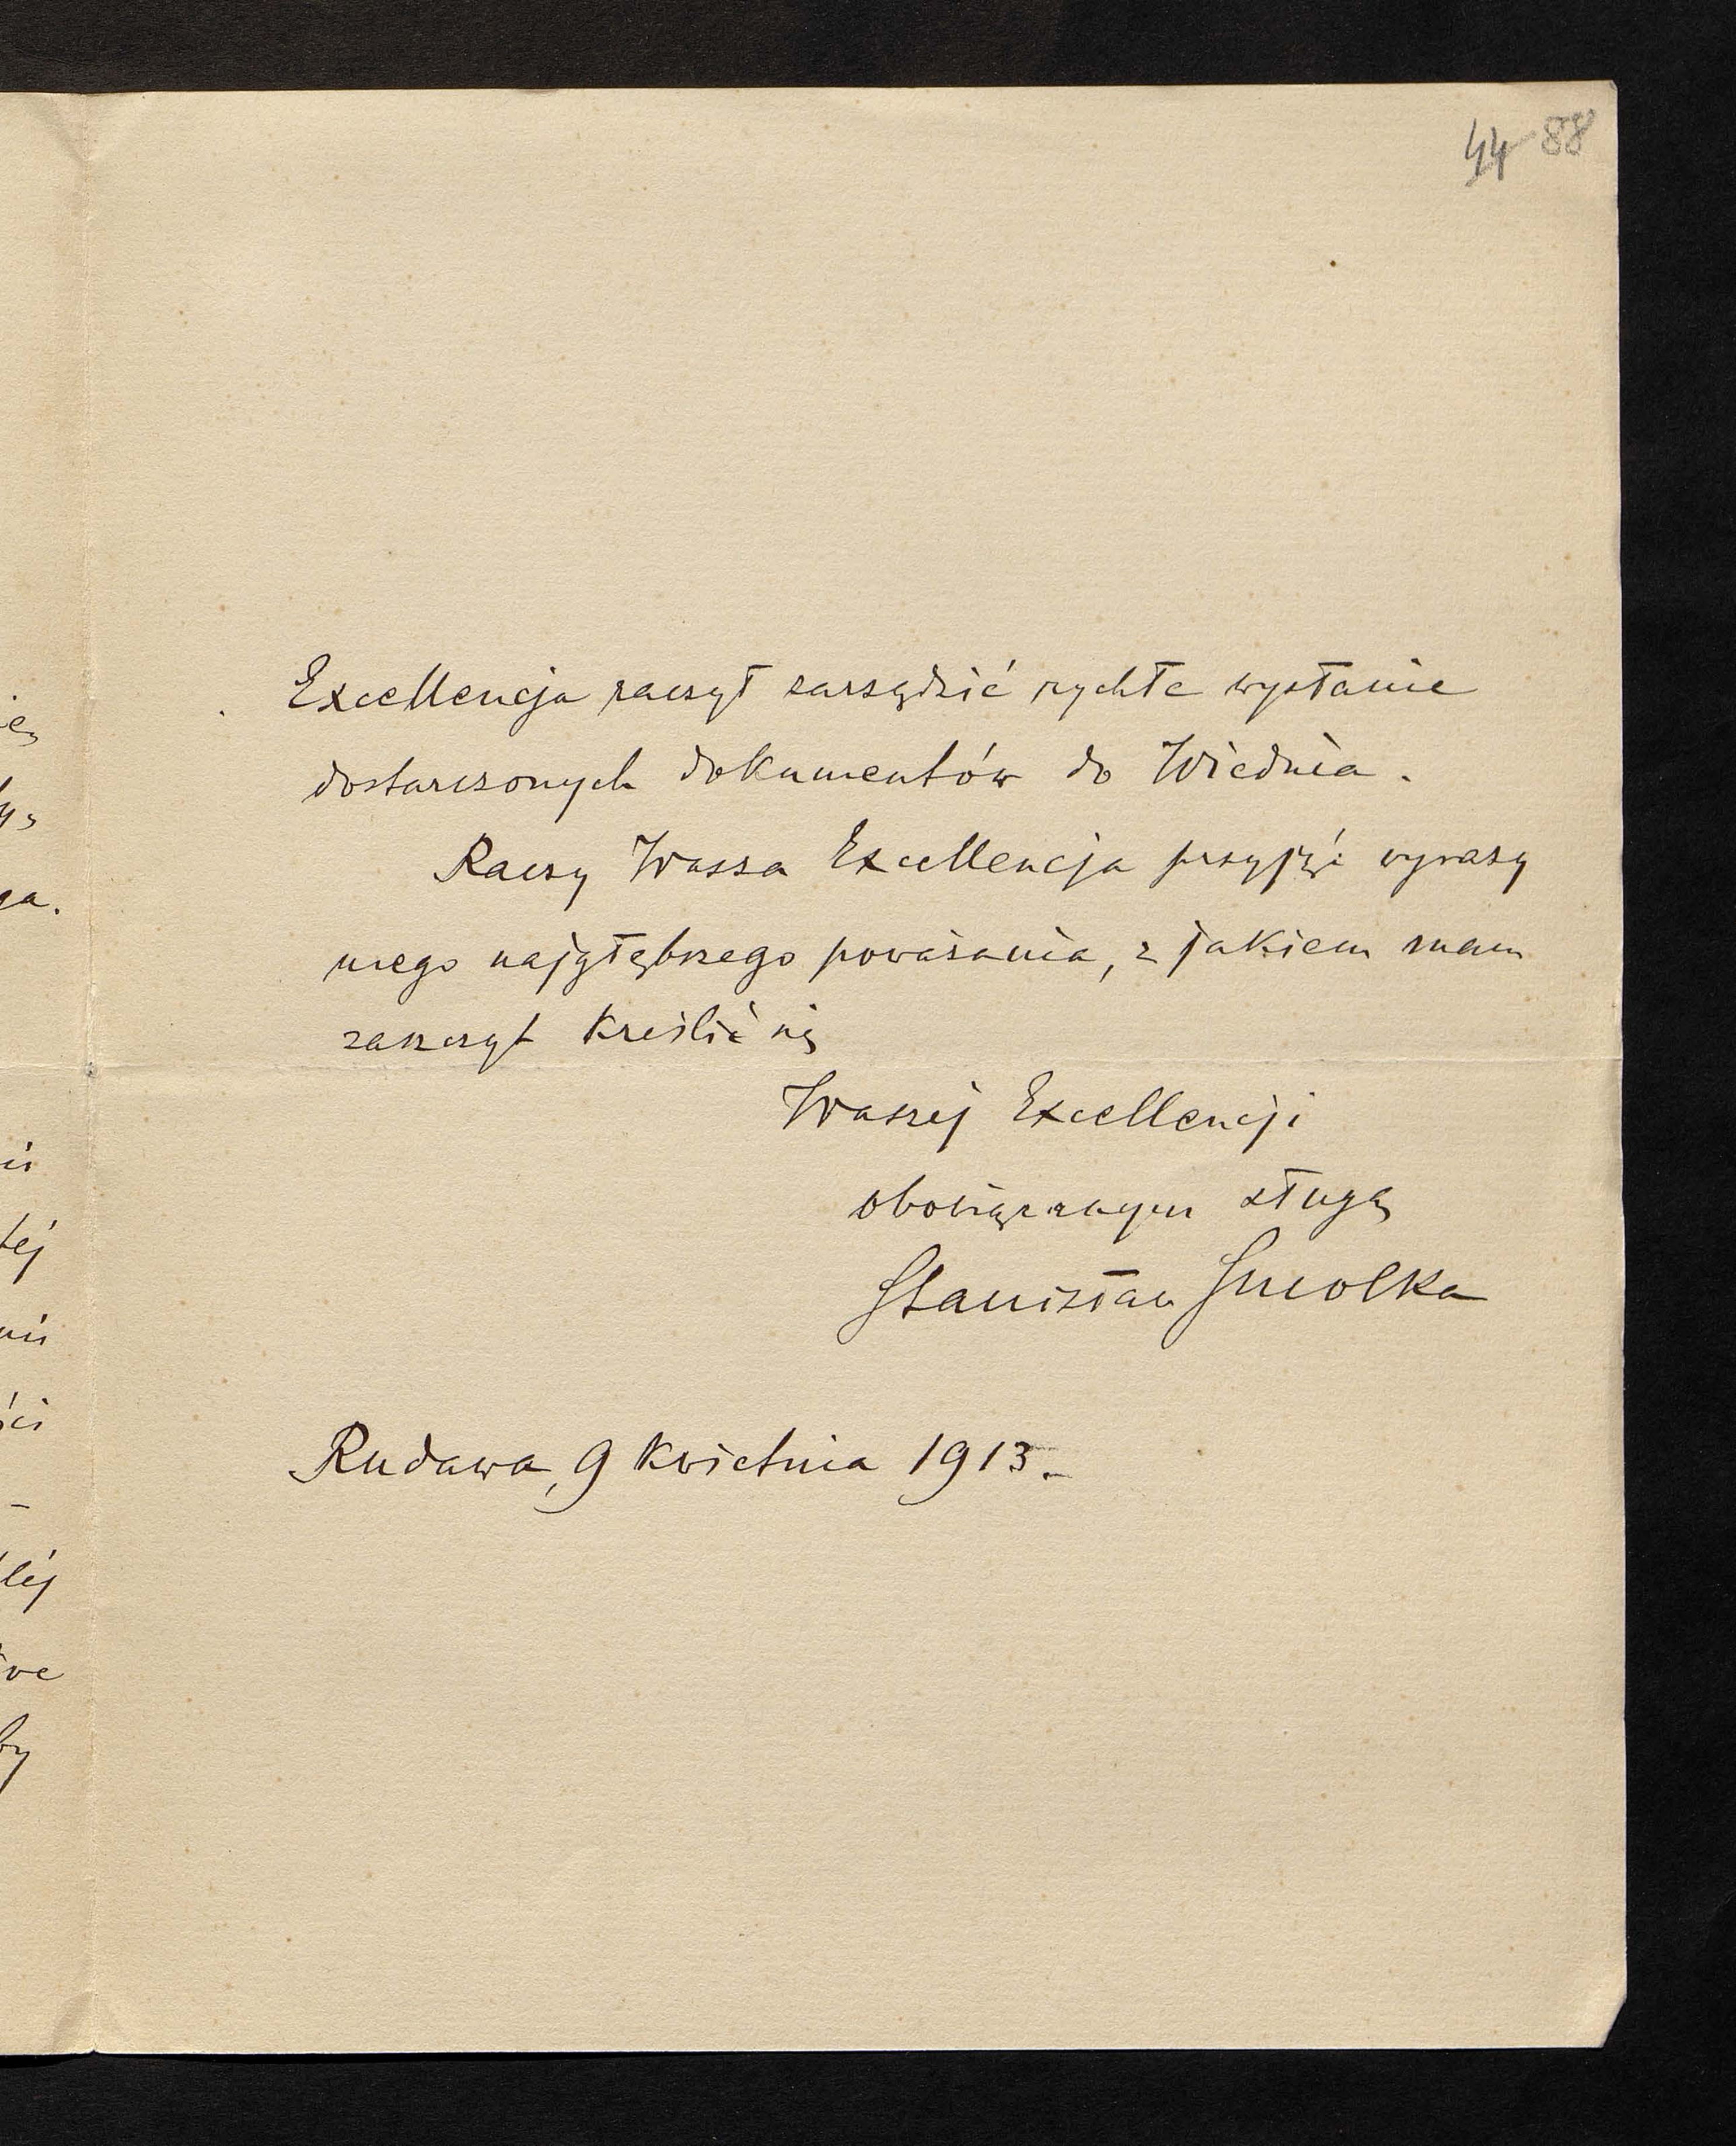 44 88
Excellencja raczył zarządzić rychłe wysłanie
dostarczonych dokumentów do Wiednia.
Raczy Wasza Excellencja przyjąć wyrazy
mego najgłębszego poważania, z jakiem mam
zaszczyt kreślić się
Waszej Excellencji
obowiązanym sługą
Stanisław Smolka
Rudawa, 9 kwietnia 1913.